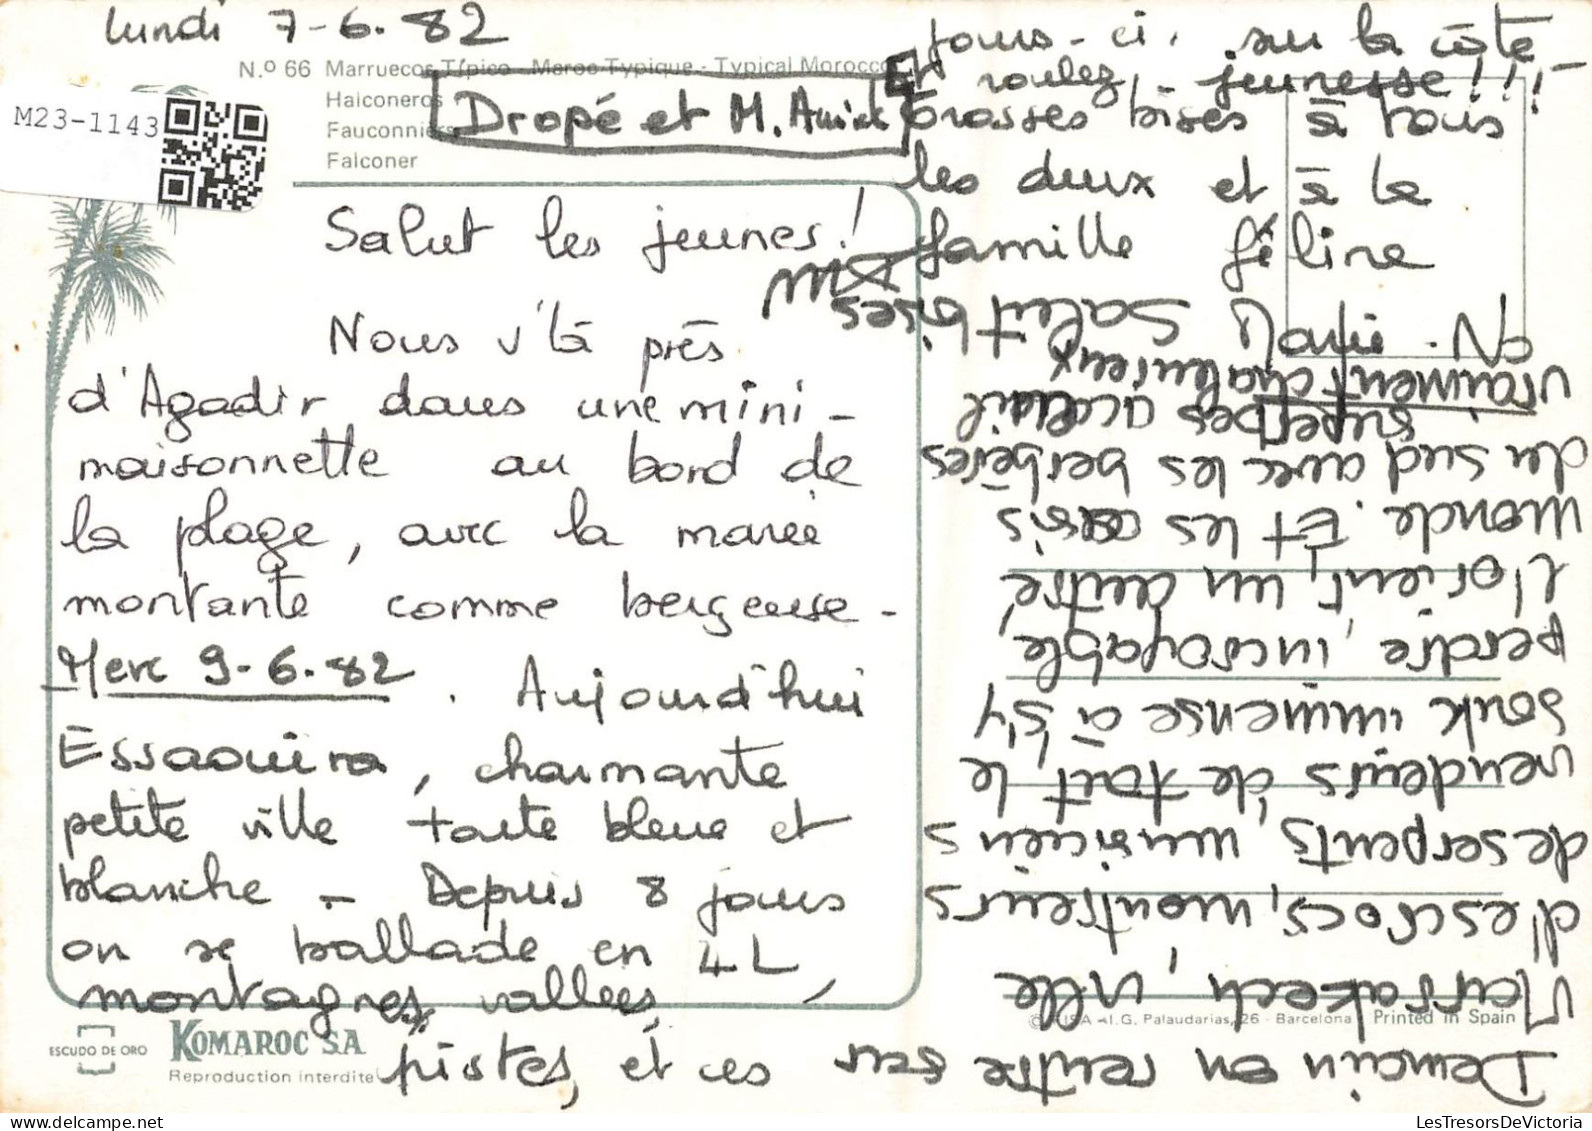 lundi 7-6.82
N.º 66 Marruecos Típico - Maroc Typique - Typical Morocco
Halconeros
Fauconniers
Falconer
M23-1143
Dropé et M.
Salut les jeunes!
Nous v'là près
d'Agadir dans une mini-
maisonnette au bord de
la plage, avec la marée
montante comme berceuse -
Merc 9-6.82. Aujourd'hui
Essaouira, charmante
petite ville toute bleue et
blanche - Depuis 8 jours
on se ballade en 4L,
montagnes, vallées,
pistes, et ces
jours-ci, sur la côte -
Et roulez, jeunesse!!!
Grosses bises à vous
les deux et à la
famille féline
Marie.
Demain on rentre sur
Marrakech, ville
d'escrocs, montreurs
de serpents, musiciens
vendeurs de tout, le
souk immense à s'y
perdre, incroyable,
l'orient, un autre
monde. Et les oasis
du sud avec les berbères
superbes accueil
vraiment chaleureux
Salut bises
ESCUDO DE ORO
KOMAROC S.A.
Reproduction interdite
© FISA - I.G. Palaudarias, 26 - Barcelona Printed in Spain
LesTresorsDeVictoria.com